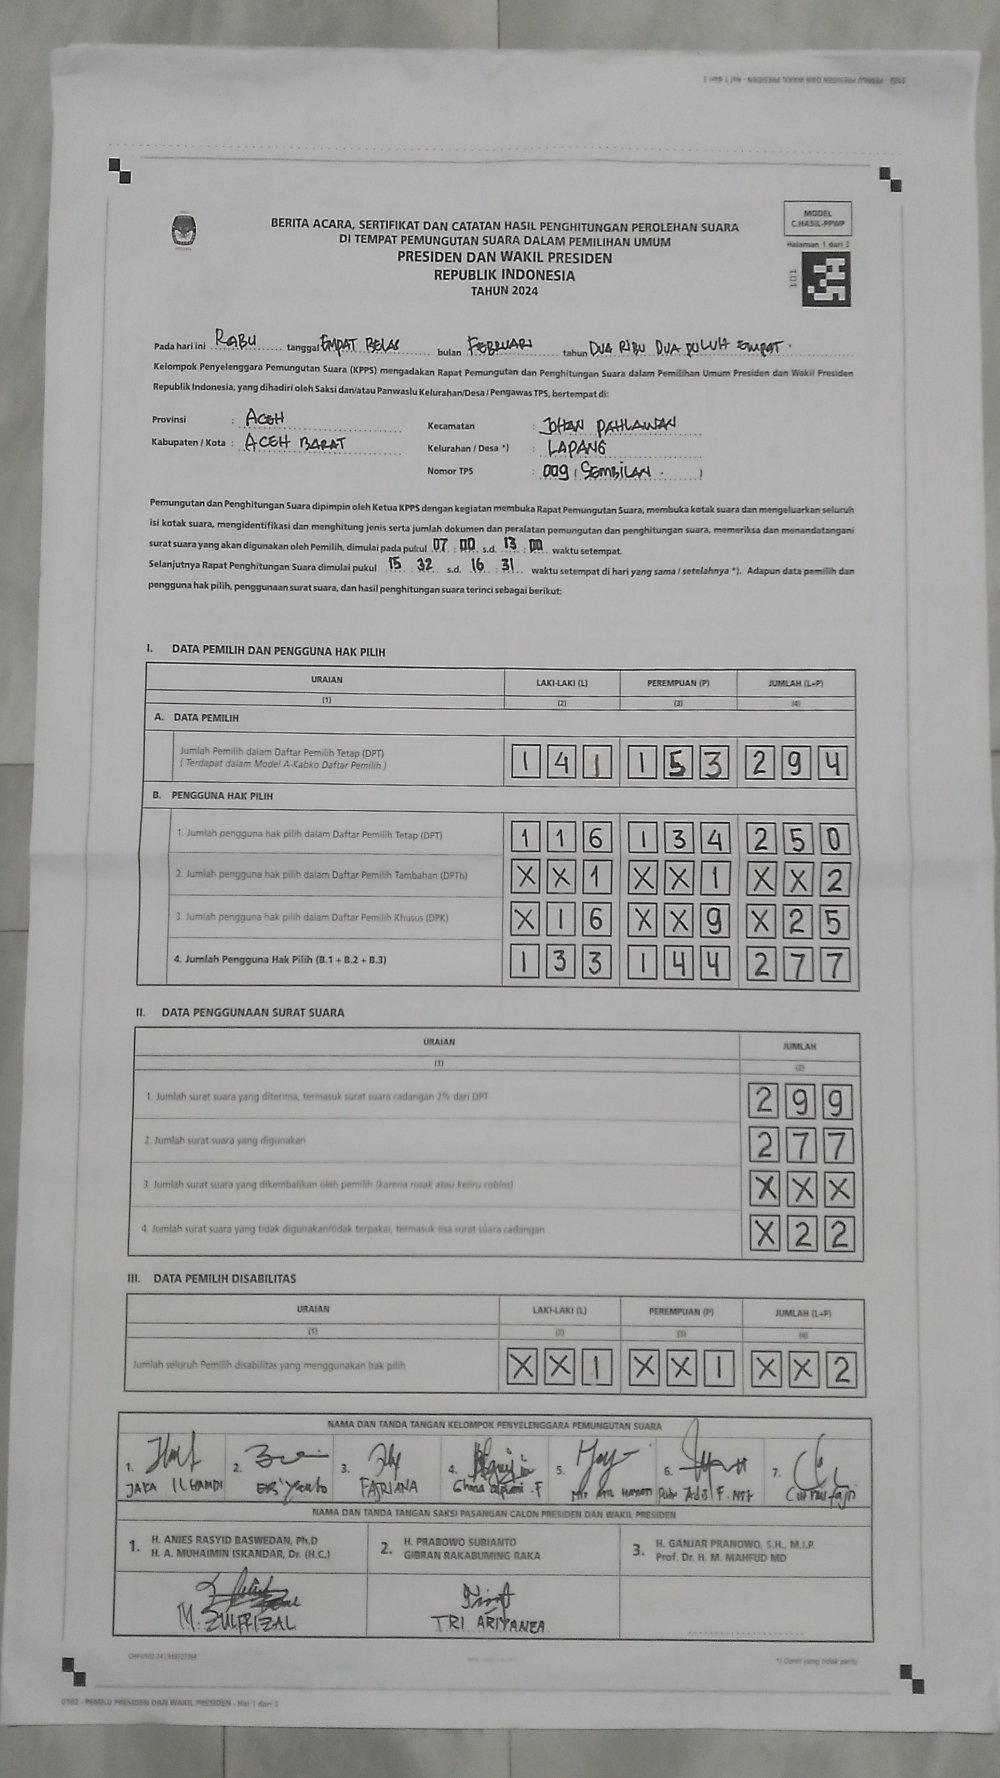 MODEL
C.HASIL-PPWP
Halaman 1 dari 3
101
BERITA ACARA, SERTIFIKAT DAN CATATAN HASIL PENGHITUNGAN PEROLEHAN SUARA
DI TEMPAT PEMUNGUTAN SUARA DALAM PEMILIHAN UMUM
PRESIDEN DAN WAKIL PRESIDEN
REPUBLIK INDONESIA
TAHUN 2024
Pada hari ini RABU tanggal EMPAT BELAS bulan FEBRUARI tahun DUA RIBU DUA PULUH EMPAT.
Kelompok Penyelenggara Pemungutan Suara (KPPS) mengadakan Rapat Pemungutan dan Penghitungan Suara dalam Pemilihan Umum Presiden dan Wakil Presiden
Republik Indonesia, yang dihadiri oleh Saksi dan/atau Panwaslu Kelurahan/Desa / Pengawas TPS, bertempat di:
Provinsi : ACEH
Kabupaten / Kota : ACEH BARAT
Kecamatan : JOHAN PAHLAWAN
Kelurahan / Desa *) : LAPANG
Nomor TPS : 009 (SEMBILAN. )
Pemungutan dan Penghitungan Suara dipimpin oleh Ketua KPPS dengan kegiatan membuka Rapat Pemungutan Suara, membuka kotak suara dan mengeluarkan seluruh
isi kotak suara, mengidentifikasi dan menghitung jenis serta jumlah dokumen dan peralatan pemungutan dan penghitungan suara, memeriksa dan menandatangani
surat suara yang akan digunakan oleh Pemilih, dimulai pada pukul 07 : 00 s.d. 13 : 00 waktu setempat.
Selanjutnya Rapat Penghitungan Suara dimulai pukul 15 : 32 s.d. 16 : 31 waktu setempat di hari yang sama / setelahnya *). Adapun data pemilih dan
pengguna hak pilih, penggunaan surat suara, dan hasil penghitungan suara terinci sebagai berikut:
I. DATA PEMILIH DAN PENGGUNA HAK PILIH
URAIAN LAKI-LAKI (L) PEREMPUAN (P) JUMLAH (L+P)
(1) (2) (3) (4)
A. DATA PEMILIH
Jumlah Pemilih dalam Daftar Pemilih Tetap (DPT)
( Terdapat dalam Model A-Kabko Daftar Pemilih ) 1 4 1 1 5 3 2 9 4
B. PENGGUNA HAK PILIH
1. Jumlah pengguna hak pilih dalam Daftar Pemilih Tetap (DPT) 1 1 6 1 3 4 2 5 0
2. Jumlah pengguna hak pilih dalam Daftar Pemilih Tambahan (DPTb) X X 1 X X 1 X X 2
3. Jumlah pengguna hak pilih dalam Daftar Pemilih Khusus (DPK) X 1 6 X X 9 X 2 5
4. Jumlah Pengguna Hak Pilih (B.1 + B.2 + B.3) 1 3 3 1 4 4 2 7 7
II. DATA PENGGUNAAN SURAT SUARA
URAIAN JUMLAH
(1) (2)
1. Jumlah surat suara yang diterima, termasuk surat suara cadangan 2% dari DPT 2 9 9
2. Jumlah surat suara yang digunakan 2 7 7
3. Jumlah surat suara yang dikembalikan oleh pemilih (karena rusak atau keliru coblos) X X X
4. Jumlah surat suara yang tidak digunakan/tidak terpakai, termasuk sisa surat suara cadangan X 2 2
III. DATA PEMILIH DISABILITAS
URAIAN LAKI-LAKI (L) PEREMPUAN (P) JUMLAH (L+P)
(1) (2) (3) (4)
Jumlah seluruh Pemilih disabilitas yang menggunakan hak pilih X X 1 X X 1 X X 2
NAMA DAN TANDA TANGAN KELOMPOK PENYELENGGARA PEMUNGUTAN SUARA
1. 2. 3. 4. 5. 6. 7.
JAKA ILHAMDI FAJRIANA
NAMA DAN TANDA TANGAN SAKSI PASANGAN CALON PRESIDEN DAN WAKIL PRESIDEN
1. H. ANIES RASYID BASWEDAN, Ph.D
H. A. MUHAIMIN ISKANDAR, Dr. (H.C.)
2. H. PRABOWO SUBIANTO
GIBRAN RAKABUMING RAKA
3. H. GANJAR PRANOWO, S.H., M.I.P.
Prof. Dr. H. M. MAHFUD MD
M. ZULFRIZAL
TRI ARIYANEA
*) Coret yang tidak perlu
0102 - PEMILU PRESIDEN DAN WAKIL PRESIDEN - Hal 1 dari 3